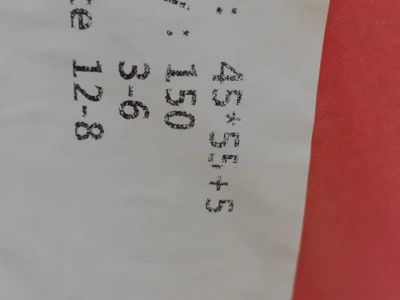 : 45*55+5
: 150
3-6
te 12-8